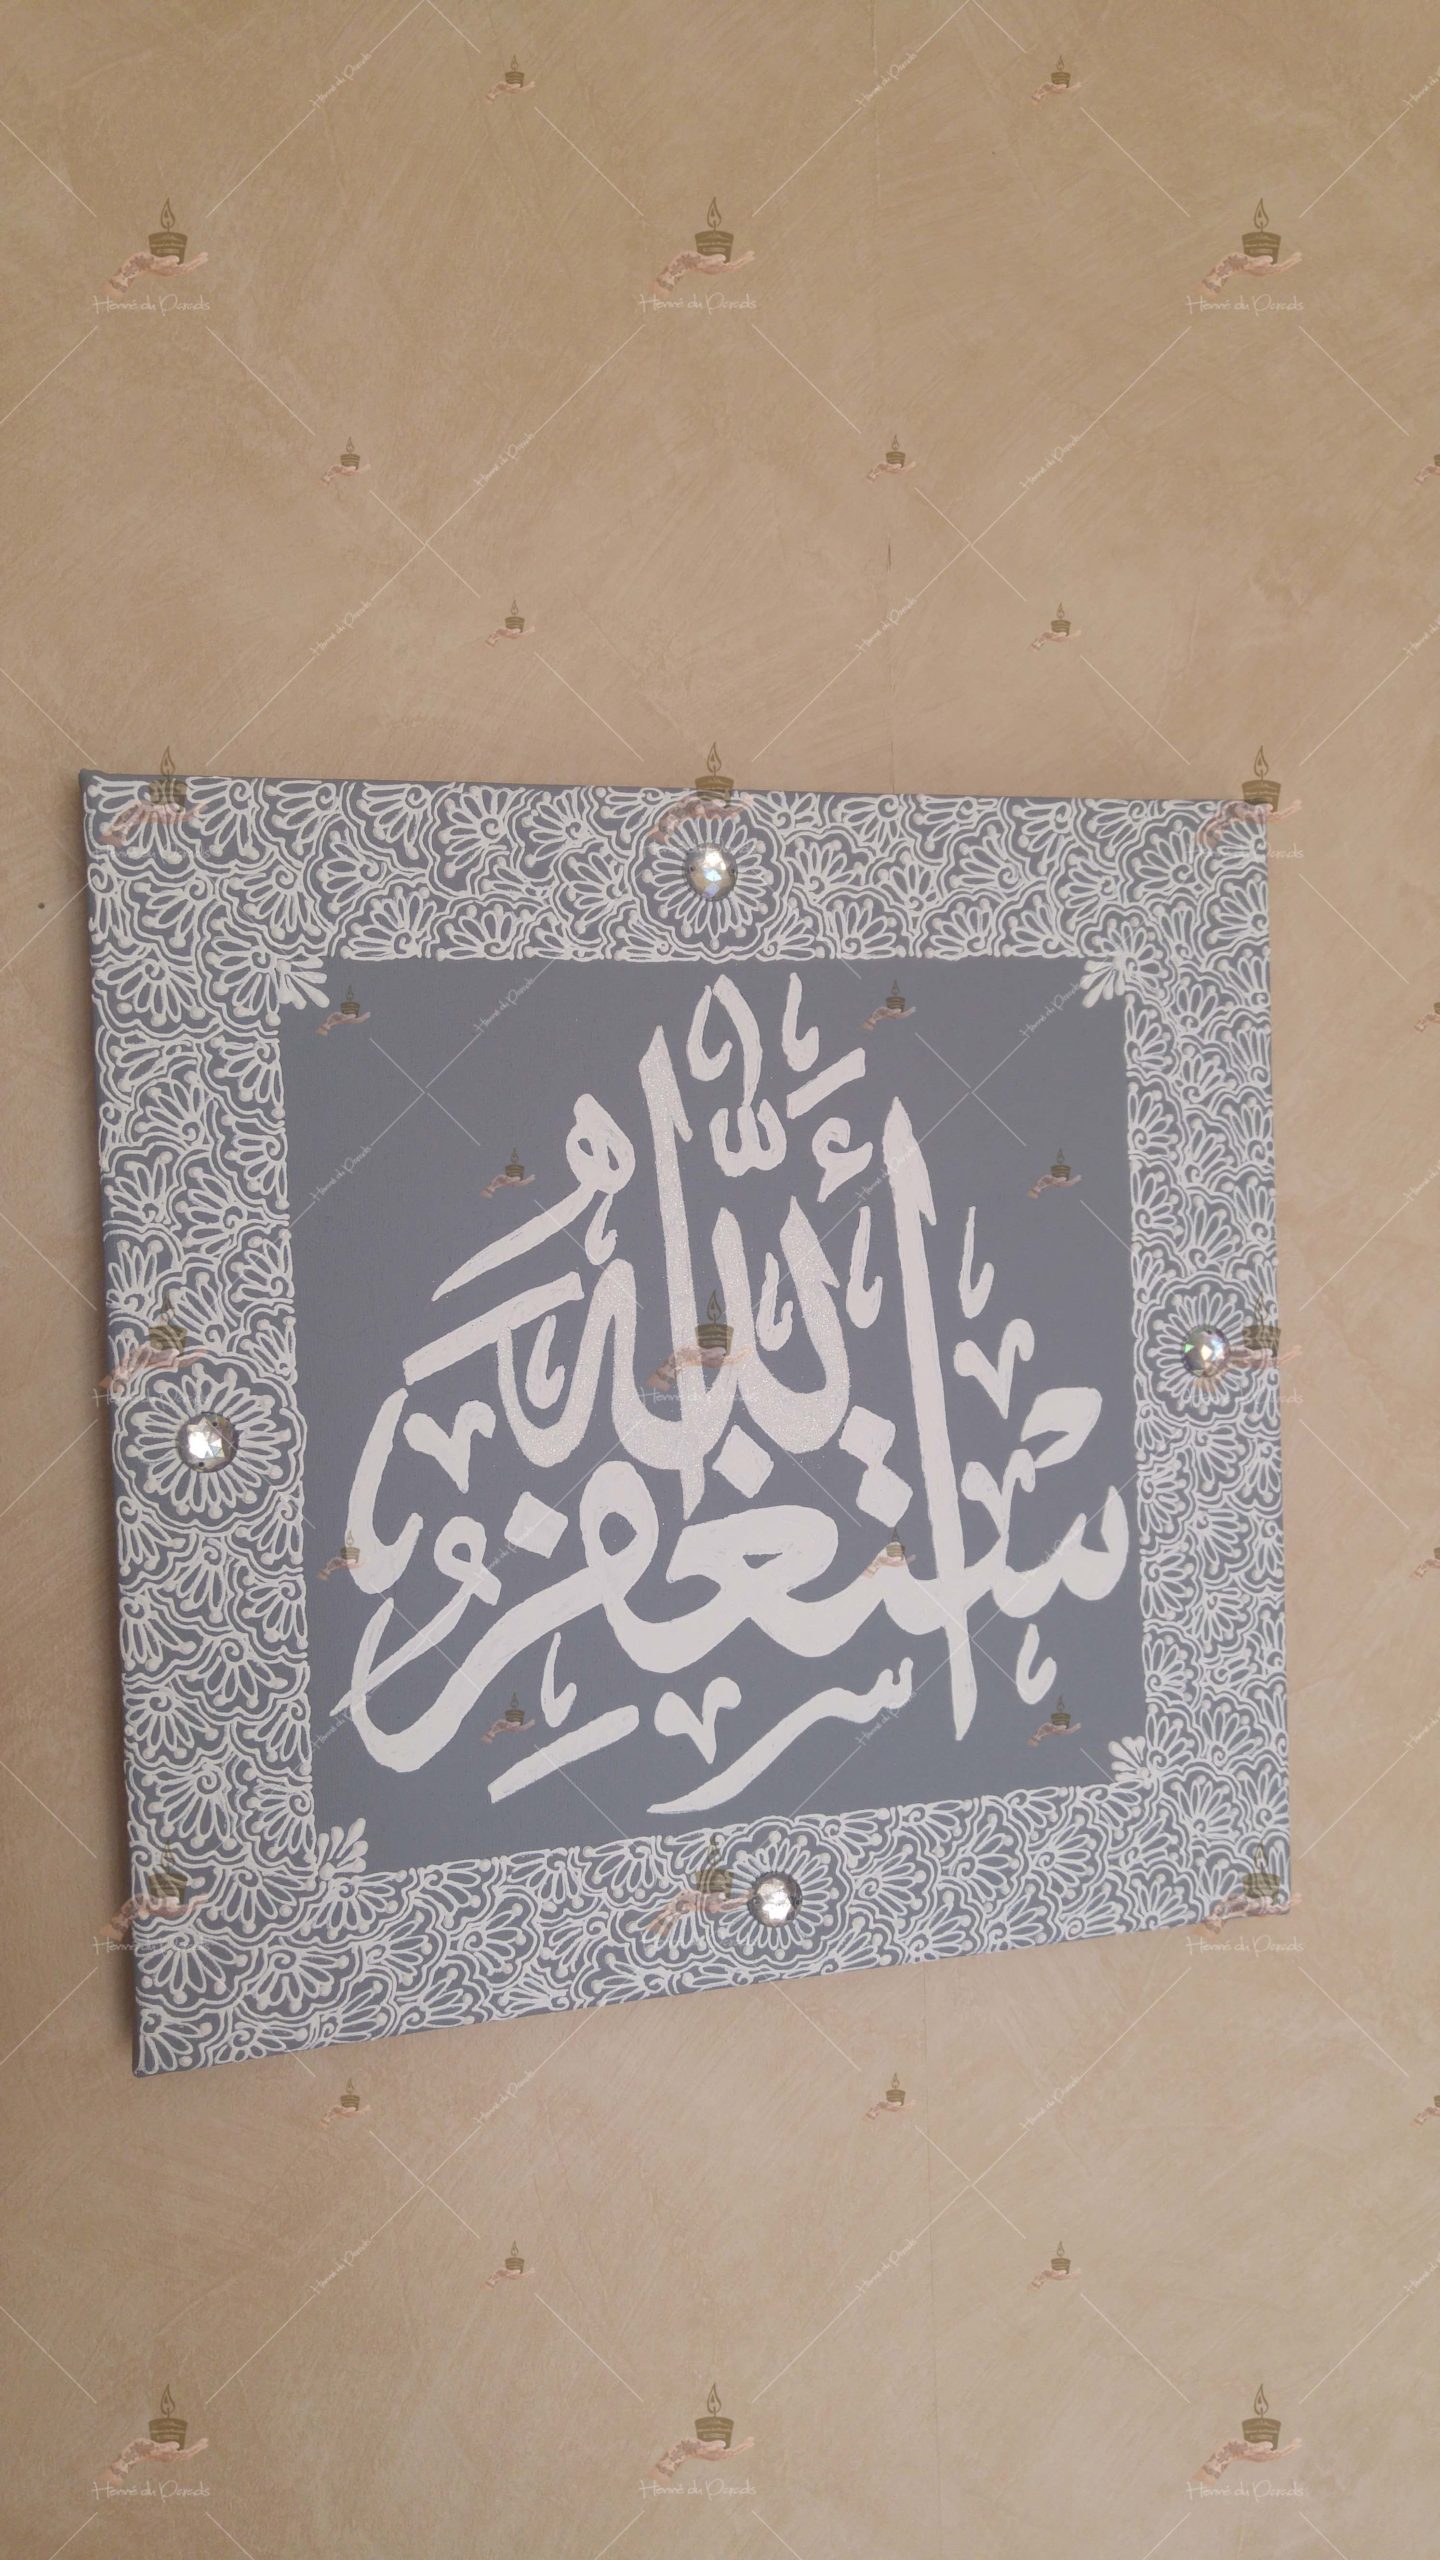 أستغفر الله
Henné du Paradis